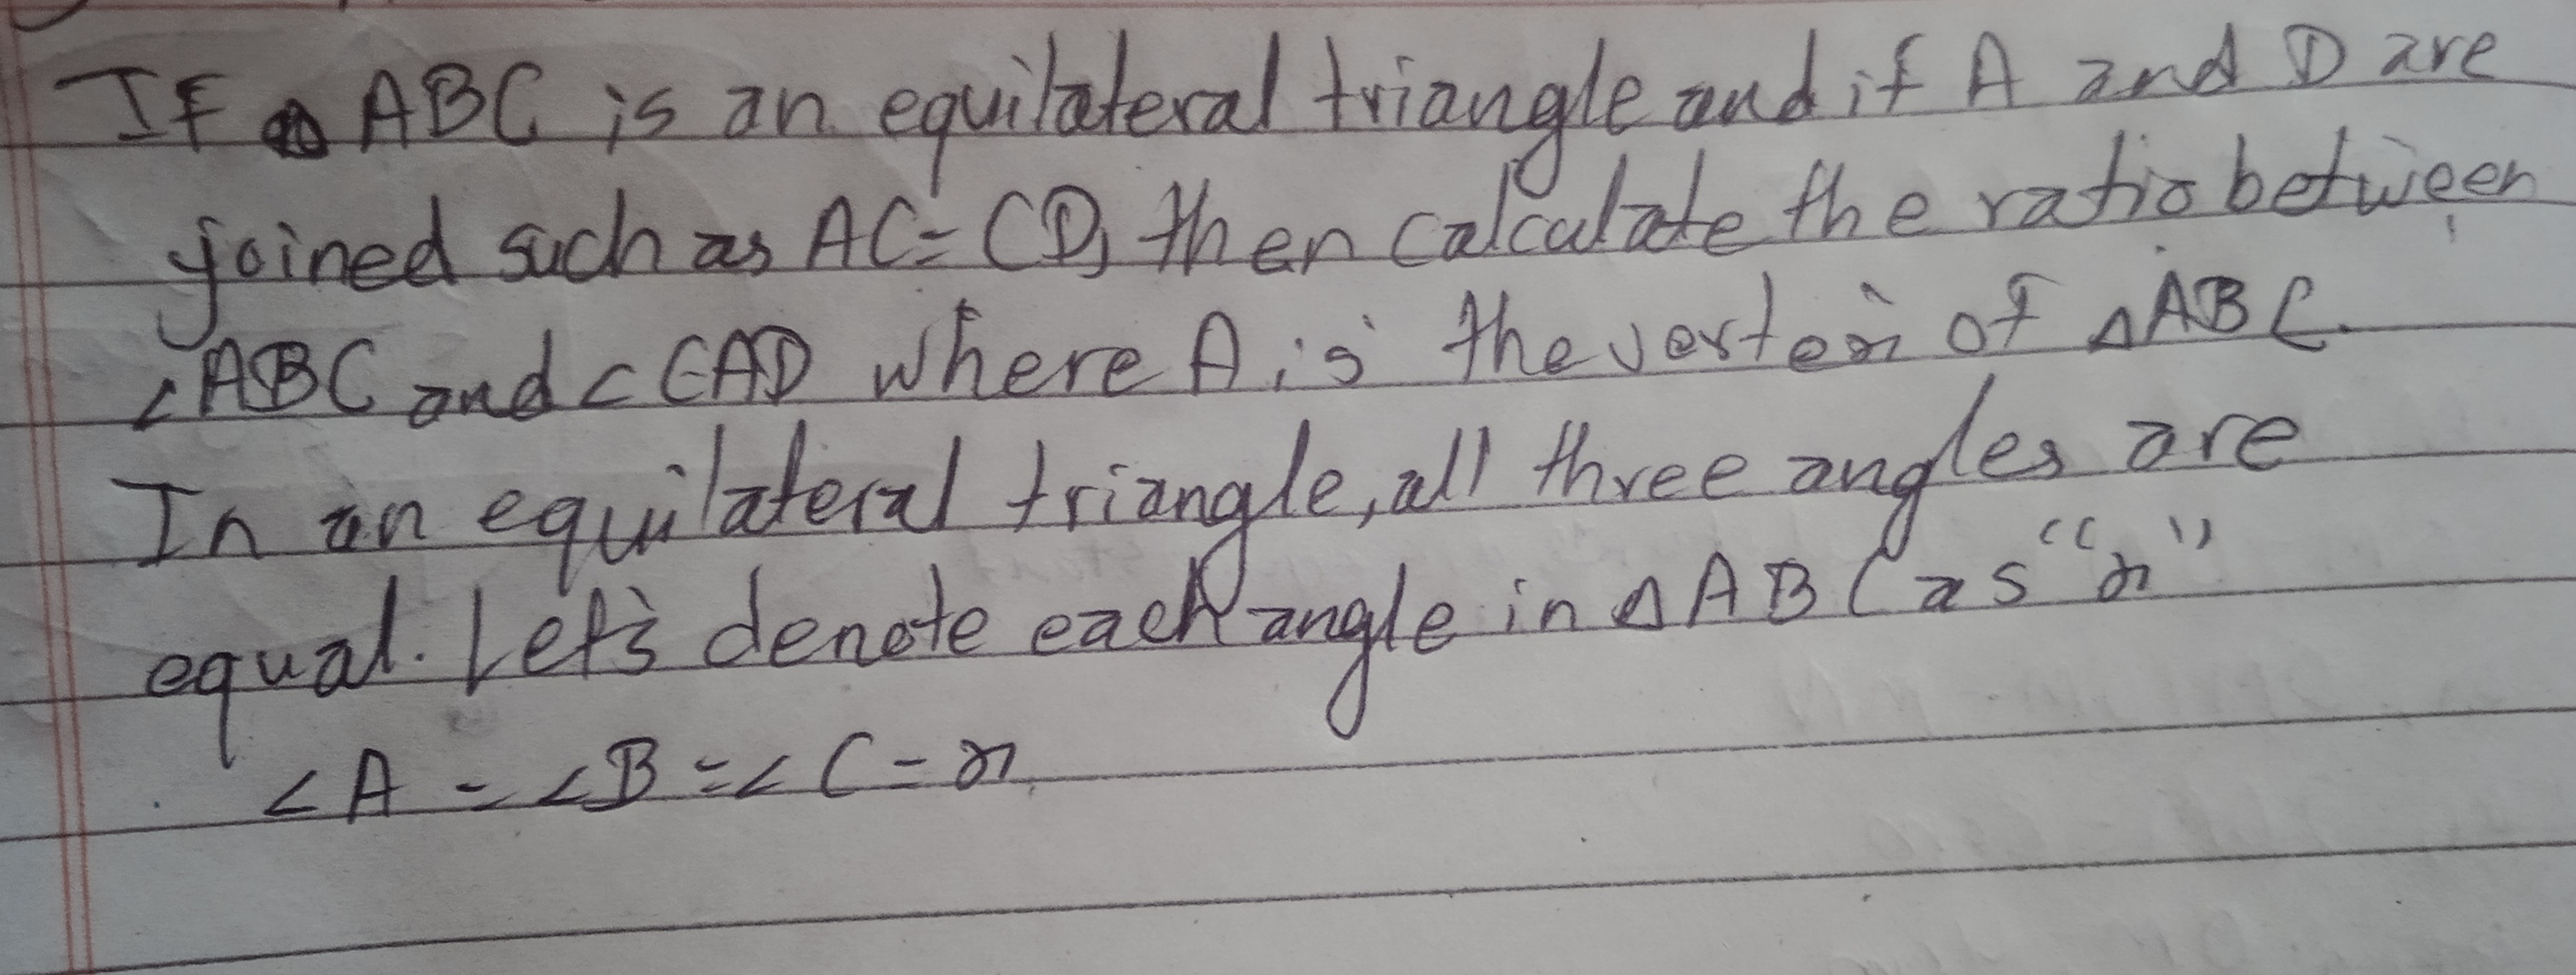 If ABC is an equilateral triangle and if A and D are
joined such as AC = CD, then calculate the ratio between
∠ABC and ∠CAD where A is the vertex of △ABC.
In an equilateral triangle, all three angles are
equal. Let's denote each angle in △ABC as "x"
∠A = ∠B = ∠C = x